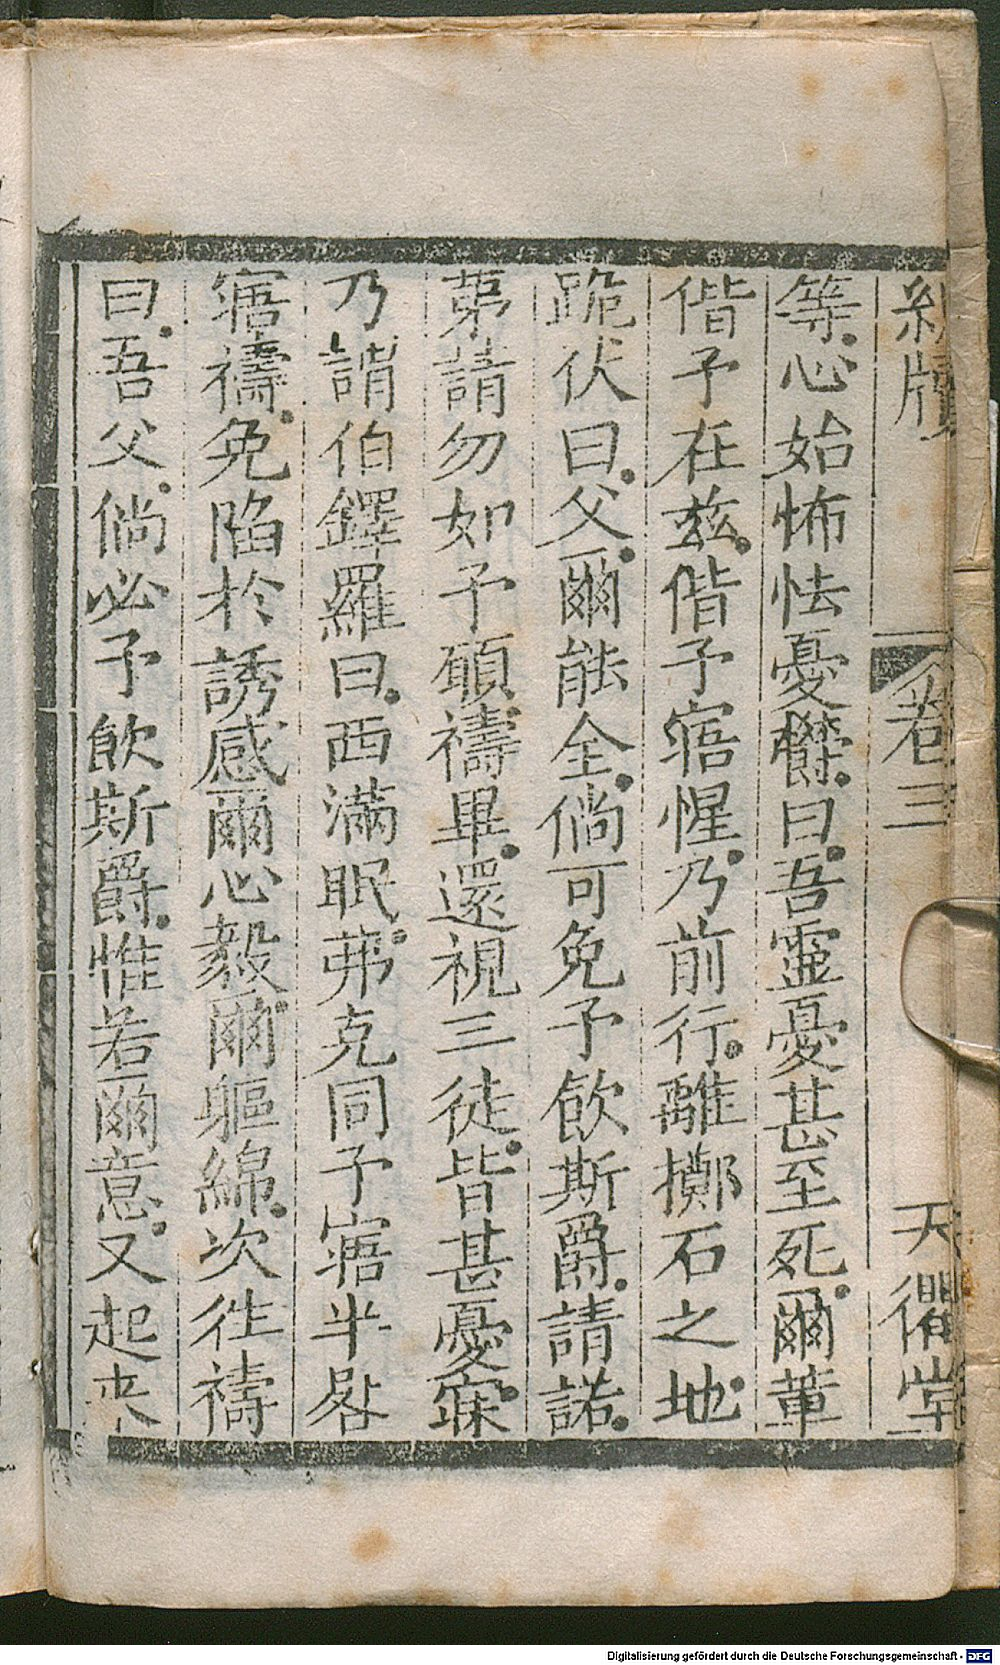 卷三
天衢堂
等。心始怖怯憂欝。曰。吾靈憂甚至死。爾董
偕予在兹。偕予寤惺。乃前行。離擲石之地。
跪伏曰。父。爾能全。倘可免予飲斯爵。請諾。
第請勿如予願。禱畢。還視三徒。皆甚憂寐。
乃誚伯鐸羅曰。西滿眠。弗克同予寤半晷
寤禱。免陷於誘感。爾心毅。爾軀綿。次徃禱
曰。吾父。倘必予飲斯爵。惟若爾意。又起來
Digitalisierung gefördert durch die Deutsche Forschungsgemeinschaft - DFG